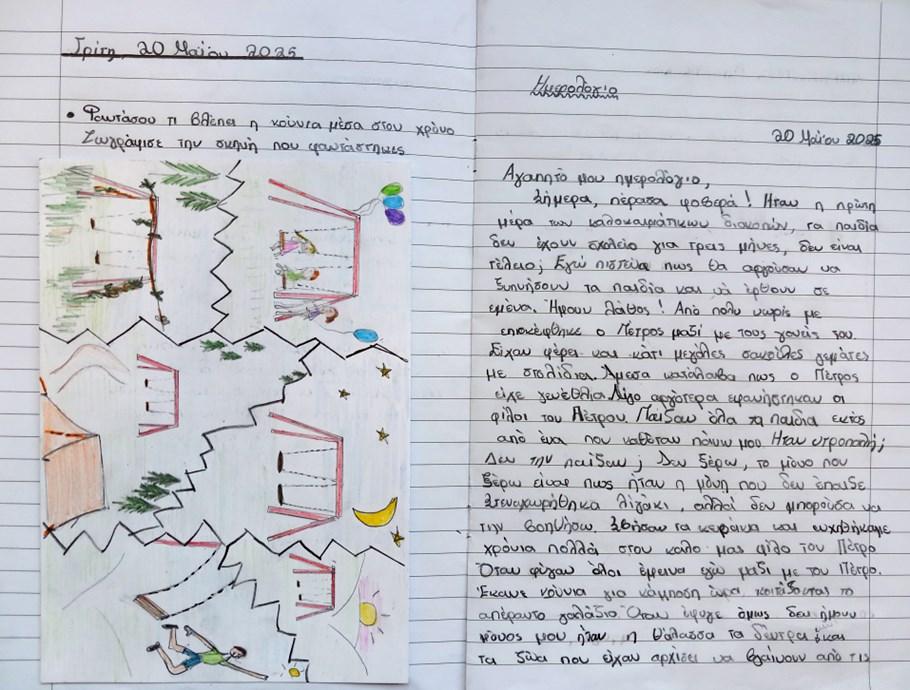 Τρίτη, 20 Μαΐου 2025
• Φαντάσου τι βλέπει η κούνια μέσα στον χρόνο
Ζωγράφισε την σκηνή που φαντάστηκες
Ημερολόγιο
20 Μαΐου 2025
Αγαπητό μου ημερολόγιο,
Σήμερα, πέρασα φοβερά! Ήταν η πρώτη
μέρα των καλοκαιριάτικων διακοπών, τα παιδιά
δεν έχουν σχολείο για τρεις μήνες, δεν είναι
τέλειο; Εγώ πίστευα πως θα αργούσαν να
ξυπνήσουν τα παιδιά και να έρθουν σε
εμένα. Ήμουν λάθος! Από πολύ νωρίς με
επισκέφθηκε ο Πέτρος μαζί με τους γονείς του.
Είχαν φέρει και κάτι μεγάλες σακούλες γεμάτες
με στολίδια. Άμεσα κατάλαβα πως ο Πέτρος
είχε γενέθλια. Λίγο αργότερα εμφανίστηκαν οι
φίλοι του Πέτρου. Παίζαν όλα τα παιδιά εκτός
από ένα που καθόταν πάνω μου. Ήταν ντροπαλή;
Δεν την παίζαν; Δεν ξέρω, το μόνο που
ξέρω είναι πως ήταν η μόνη που δεν έπαιζε
Στεναχωρήθηκα λιγάκι, αλλά δεν μπορούσα να
την βοηθήσω. Σβήσαν τα κεράκια και ευχηθήκαμε
χρόνια πολλά στον καλό μας φίλο τον Πέτρο
Όταν φύγαν όλοι έμεινα εγώ μαζί με τον Πέτρο.
Έκανε κούνια για κάμποση ώρα, κοιτάζοντας το
απέραντο γαλάζιο. Όταν έφυγε όμως δεν ήμουν
μόνος μου, ήταν η θάλασσα τα δέντρα και
τα ζώα που είχαν αρχίσει να βγαίνουν από τις